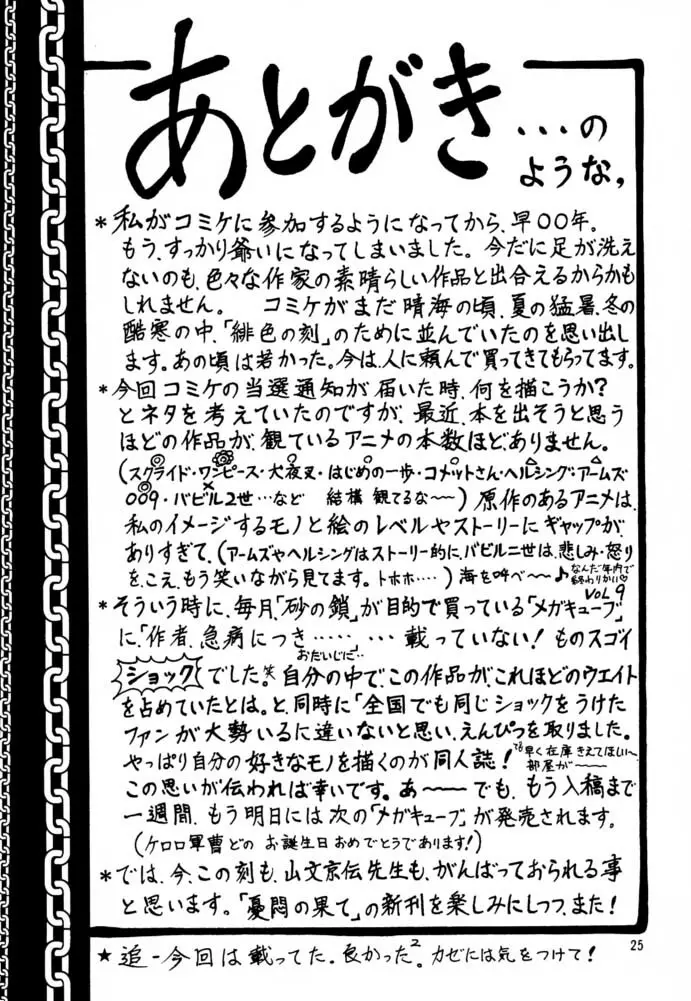 あとがき
…のような。
＊私がコミケに参加するようになってから、早〇〇年。
もう、すっかり爺いになってしまいました。今だに足が洗え
ないのも、色々な作家の素晴らしい作品と出合えるからかも
しれません。　コミケがまだ晴海の頃、夏の猛暑、冬の
酷寒の中、「緋色の刻」のために並んでいたのを思い出し
ます。あの頃は若かった。今は、人に頼んで買ってきてもらってます。
＊今回コミケの当選通知が届いた時、何を描こうか？
とネタを考えていたのですが、最近、本を出そうと思う
ほどの作品が、観ているアニメの本数ほど、ありません。
(スクライド・ワンピース・犬夜叉・はじめの一歩・コメットさん・ヘルシング・アームズ
009・バビル2世…など　結構 観てるな〜〜)原作のあるアニメは、
私のイメージするモノと絵のレベルやストーリーにギャップが
ありすぎて、(アームズやヘルシングはストーリー的に、バビル二世は、悲しみ・怒り
を、こえ、もう笑いながら見てます。トホホ‥‥)海を呼べ〜〜♪
なんだ年内で終わりかい♡
＊そういう時に、毎月「砂の鎖」が目的で買っている「メガキューブ」VOL9
に「作者、急病につき……」…載っていない！ものスゴイ
おだいじに‥
ショックでした。笑 自分の中で、この作品が、これほどのウエイト
を占めていたとは。と、同時に「全国でも同じショックをうけた
ファンが大勢いるに違いないと思い、えんぴつを取りました。
やっぱり自分の好きなモノを描くのが同人誌！
でも早く在庫きえてほしい〜部屋が〜〜
この思いが伝われば幸いです。あ〜〜でも、もう入稿まで
一週間、もう明日には次の「メガキューブ」が発売されます。
(ケロロ軍曹どの お誕生日おめでとうであります！)
＊では、今、この刻も、山文京伝先生も、がんばっておられる事
と思います。「憂悶の果て」の新刊を楽しみにしつつ、また！
25
★追－今回は載ってた。良かった2。カゼには気をつけて！